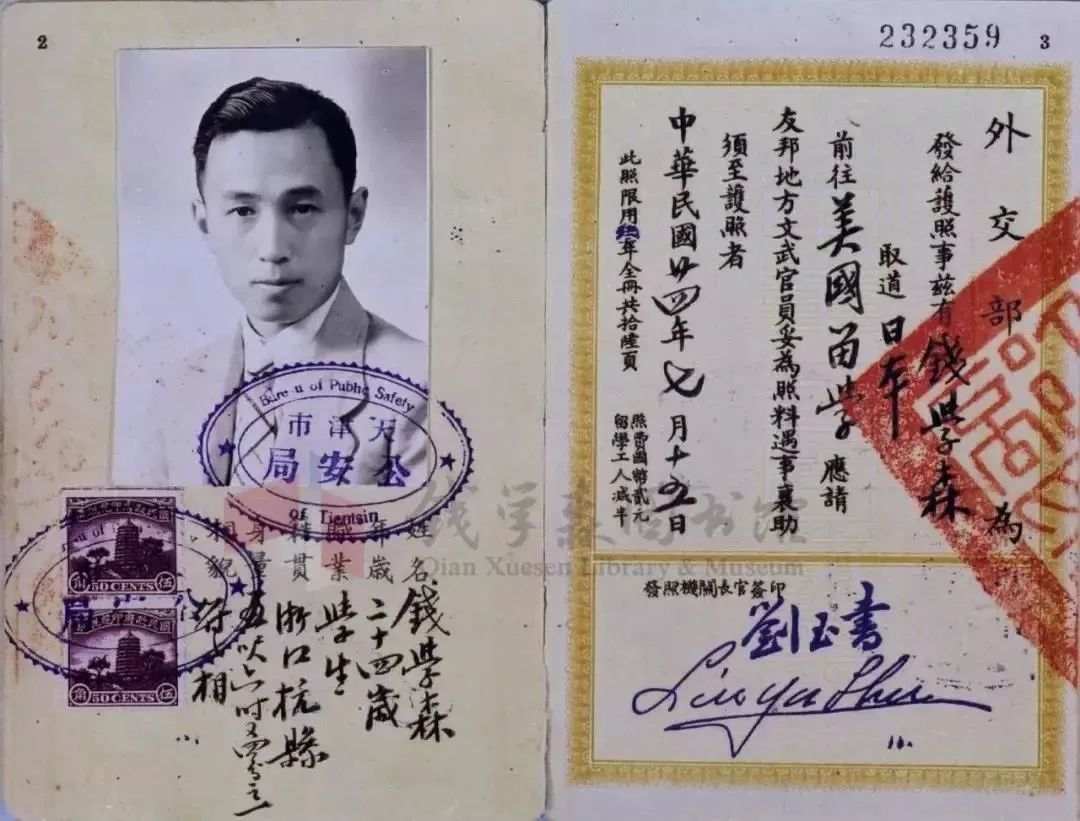 2
Bureau of Public Safety
天津市
公安局
of Tientsin
姓名 錢學森
年歲 二十四歲
職業 學生
籍貫 浙江杭縣
身量 五呎六吋又四分之一
相貌 符相
50 CENTS
50 CENTS
232359
3
外交部為
發給護照事茲有錢學森
取道日本
前往美國留學應請
友邦地方文武官員妥為照料遇事襄助
須至護照者
中華民國廿四年七月十五日
此照限用年全冊共拾陸頁
照費國幣貳元
留學工人減半
發照機關長官簽印
劉玉書
Liu Yu Shu
钱学森图书馆
Qian Xuesen Library & Museum